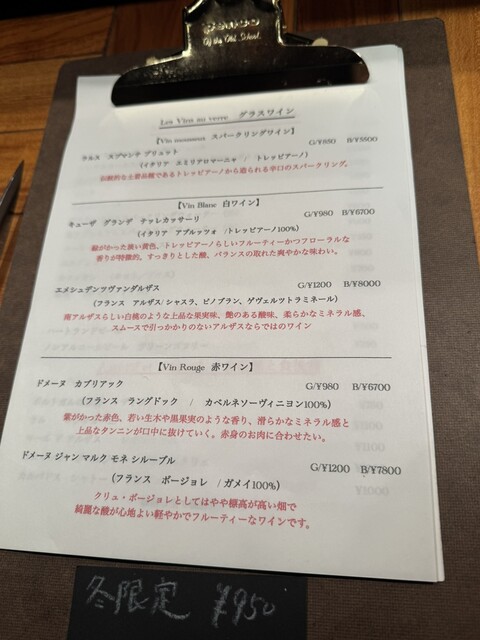 Of the Old School.
Les Vins au verre　グラスワイン
【Vin mousseux　スパークリングワイン】
G/¥850　B/¥5500
ラルス　スプマンテ ブリュット
（イタリア　エミリアロマーニャ　/　トレッビアーノ）
伝統的な土着品種であるトレッビアーノから造られる辛口のスパークリング。
【Vin Blanc　白ワイン】
キューザ　グランデ　テッレカッサーリ　G/¥980　B/¥6700
（イタリア　アブルッツォ　/トレッビアーノ100%）
緑がかった淡い黄色、トレッビアーノらしいフルーティーかつフローラルな
香りが特徴的、すっきりとした酸、バランスの取れた爽やかな味わい。
エメシュデンツヴァンダルザス　G/¥1200　B/¥8000
（フランス　アルザス/シャスラ、ピノブラン、ゲヴェルツトラミネール）
南アルザスらしい白桃のような上品な果実味、艶のある酸味、柔らかなミネラル感、
スムースで引っかかりのないアルザスならではのワイン
【Vin Rouge　赤ワイン】
ドメーヌ　カブリアック　G/¥980　B/¥6700
（フランス　ラングドック　/　カベルネソーヴィニヨン100%）
紫がかった赤色、若い生木や黒果実のような香り、滑らかなミネラル感と
上品なタンニンが口中に抜けていく。赤身のお肉に合わせたい。
ドメーヌ ジャン マルク モネ シルーブル　G/¥1200　B/¥7800
（フランス　ボージョレ　/ ガメイ100%）
クリュ・ボージョレとしてはやや標高が高い畑で
綺麗な酸が心地よい軽やかでフルーティーなワインです。
冬限定　¥950